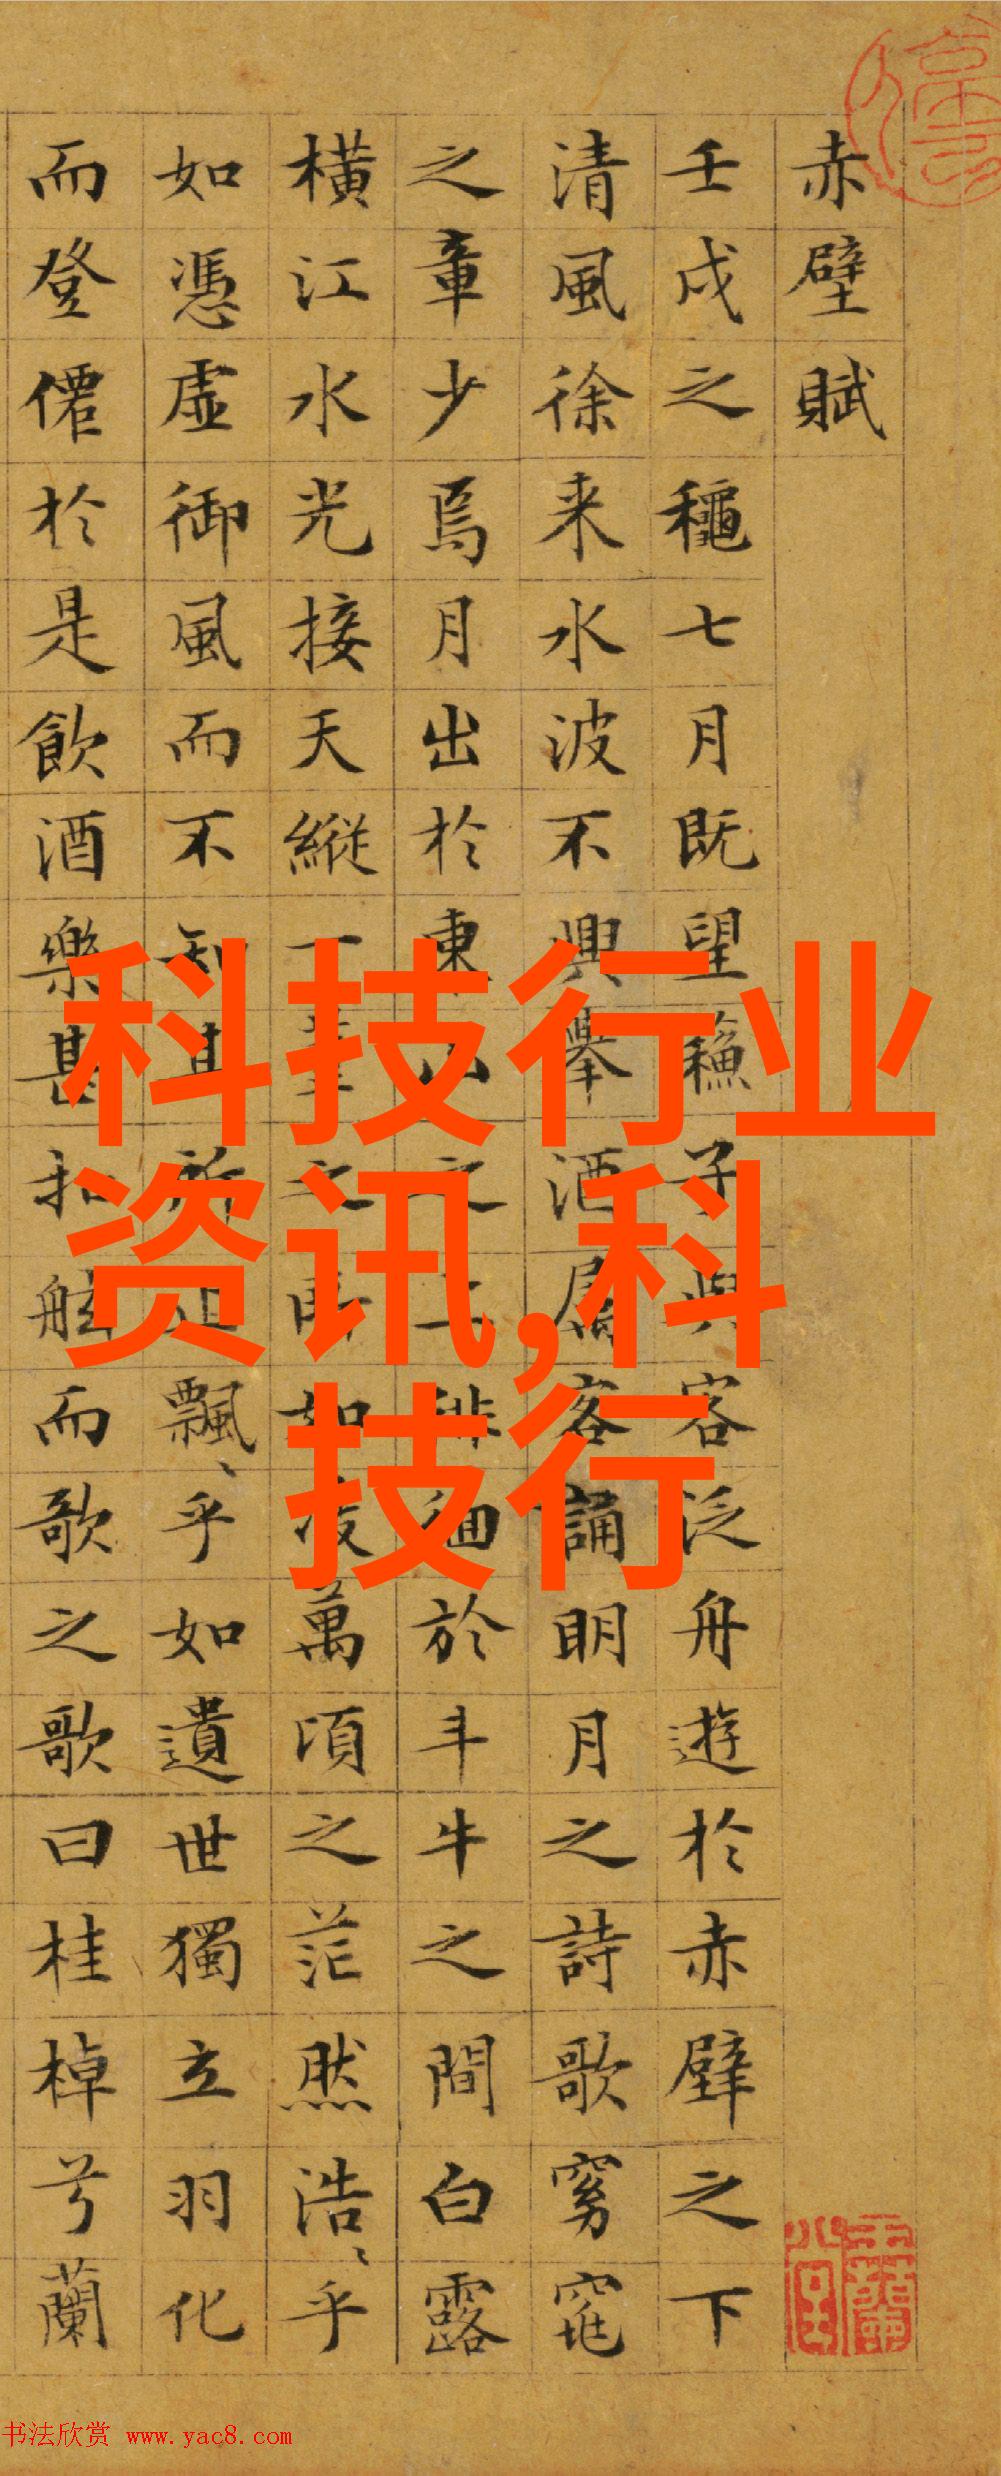 赤壁賦
壬戌之穐七月既望蘓子與客泛舟遊於赤壁之下
清風徐来水波不興舉酒屬客誦明月之詩歌窈窕
之章少焉月出於東山之上徘徊於斗牛之間白露
橫江水光接天縱一葦之所如凌萬頃之茫然浩、乎
如憑虛御風而不知其所止飄、乎如遺世獨立羽化
而登僊於是飲酒樂甚扣舷而歌之歌曰桂棹兮蘭
科技行业
资讯,科
技行
书法欣赏 www.yac8.com